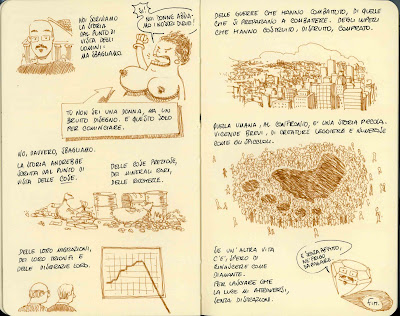 NOI SCRIVIAMO
LA STORIA
DAL PUNTO DI
VISTA DEGLI
UOMINI.
MA SBAGLIAMO.
SÌ!
NOI DONNE ABBIA-
MO I NOSTRI DIRITTI!
TU NON SEI UNA DONNA, MA UN
BRUTTO DISEGNO. E QUESTO SOLO
PER COMINCIARE.
NO, DAVVERO, SBAGLIAMO.
LA STORIA ANDREBBE
SCRITTA DAL PUNTO DI
VISTA DELLE COSE.
DELLE COSE PREZIOSE,
DEI MINERALI RARI,
DELLE RICCHEZZE.
DELLE LORO MIGRAZIONI,
DEI LORO TRIONFI E
DELLE DISGRAZIE LORO.
DELLE GUERRE CHE HANNO COMBATTUTO, DI QUELLE
CHE SI PREPARANO A COMBATTERE. DEGLI IMPERI
CHE HANNO COSTRUITO, DISTRUTTO, COMPRATO.
QUELLA UMANA, AL CONFRONTO, E' UNA STORIA PICCOLA.
VICENDE BREVI, DI CREATURE LEGGERE E NUMEROSE
COME GLI SPICCIOLI.
SE UN'ALTRA VITA
C'È, SPERO DI
RINASCERE COME
DIAMANTE.
PER LASCIARE CHE
LA LUCE MI ATTRAVERSI,
SENZA DISTRAZIONI.
E SENZA
fin.